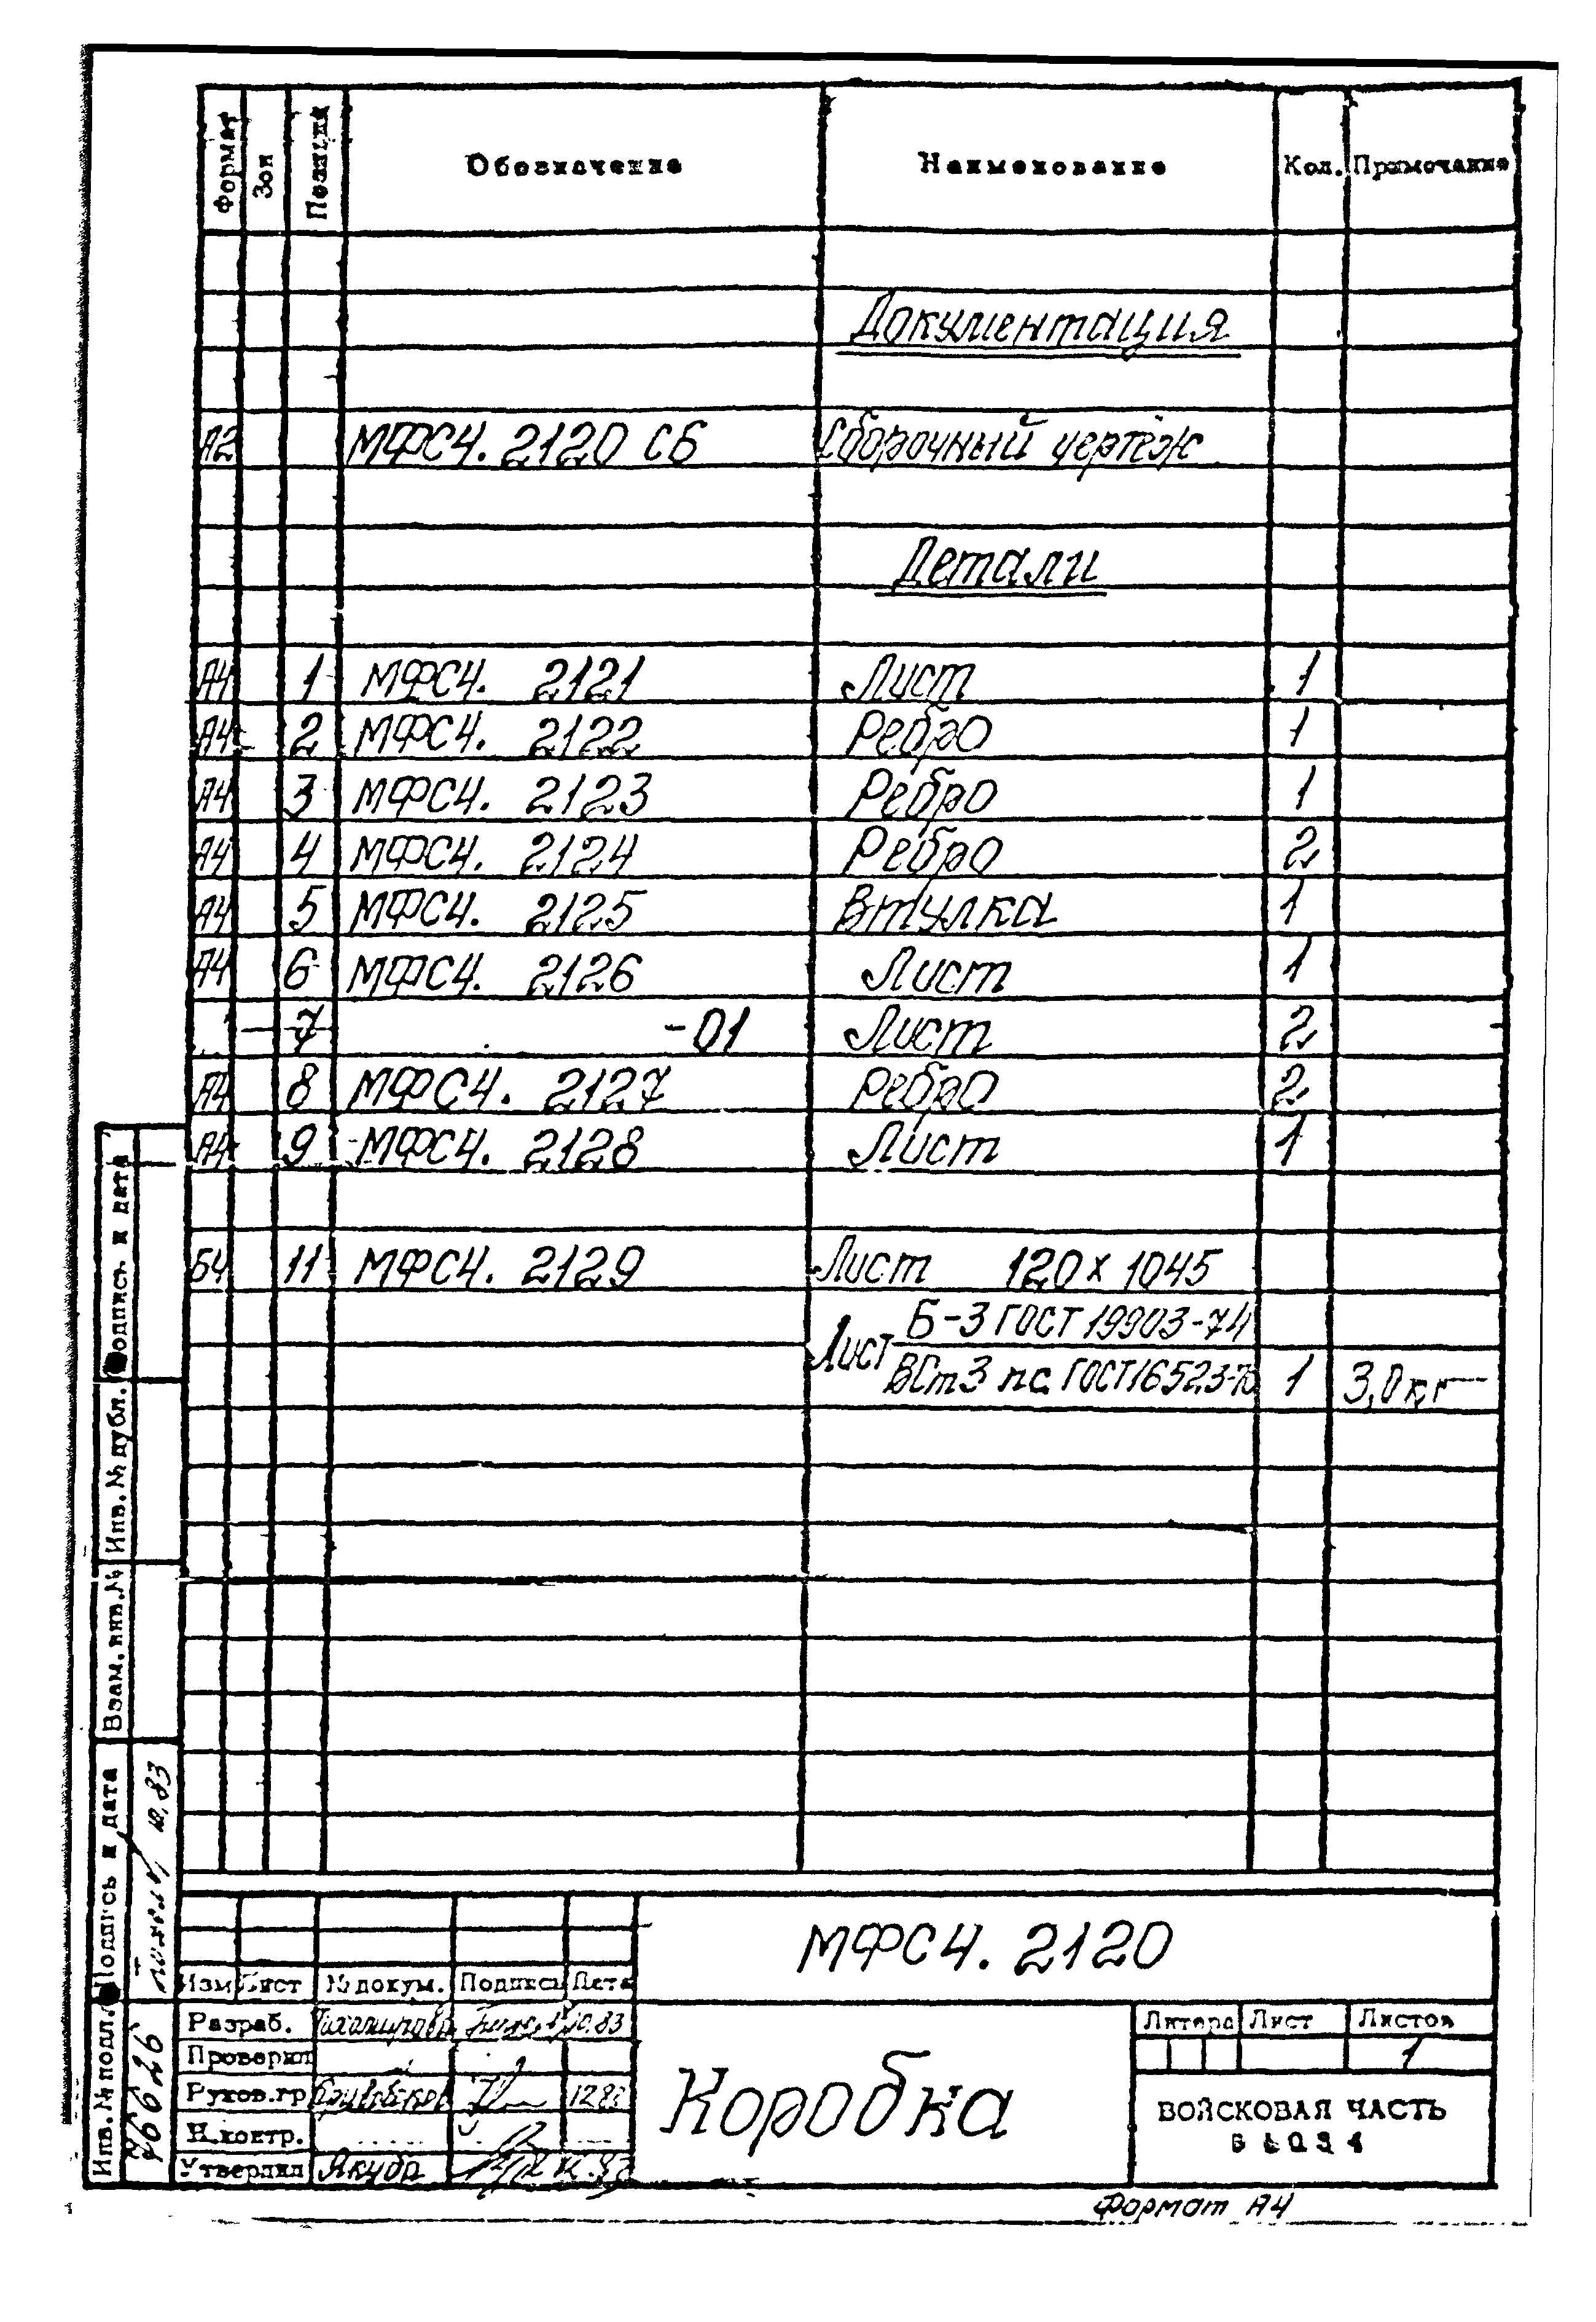 Формат Зон Позиция Обозначение Наименование Кол. Примечание
Документация
А2 МФС4. 2120 СБ Сборочный чертёж
Детали
А4 1 МФС4. 2121 Лист 1
А4 2 МФС4. 2122 Ребро 1
А4 3 МФС4. 2123 Ребро 1
А4 4 МФС4. 2124 Ребро 2
А4 5 МФС4. 2125 Втулка 1
А4 6 МФС4. 2126 Лист 1
7 -01 Лист 2
А4 8 МФС4. 2127 Ребро 2
А4 9 МФС4. 2128 Лист 1
Б4 11 МФС4. 2129 Лист 120 х 1045
Б-3 ГОСТ 19903-74
Лист
ВСт3 пс ГОСТ 16523-70 1 3,0кг
Инв. № подл. Подпись и дата Взам. инв. № Инв. № дубл. Подпись и дата
76626 10.83
МФС4. 2120
Изм Лист № докум. Подпись Дата
Разраб. Тихомирова 10.83
Проверил
Руков.гр 12.83
Н.контр.
Утвердил Якуба
Коробка
Литера Лист Листов
1
ВОЙСКОВАЯ ЧАСТЬ
Формат А4